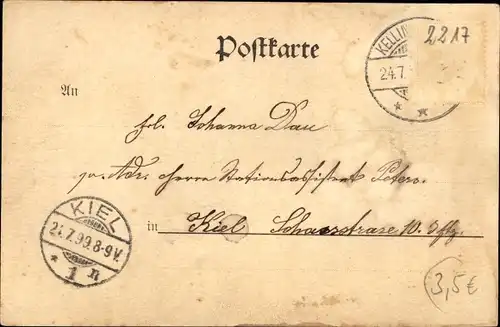 2217
Postkarte
KELLIN
24.7.
An
Frl. Johanna Dau
p. Adr. Herrn Stationsassistent Peters.
in Kiel Scharrstrase 10. 3 Etg.
KIEL
24.7.99.8-9V.
* 1 n
3,5€